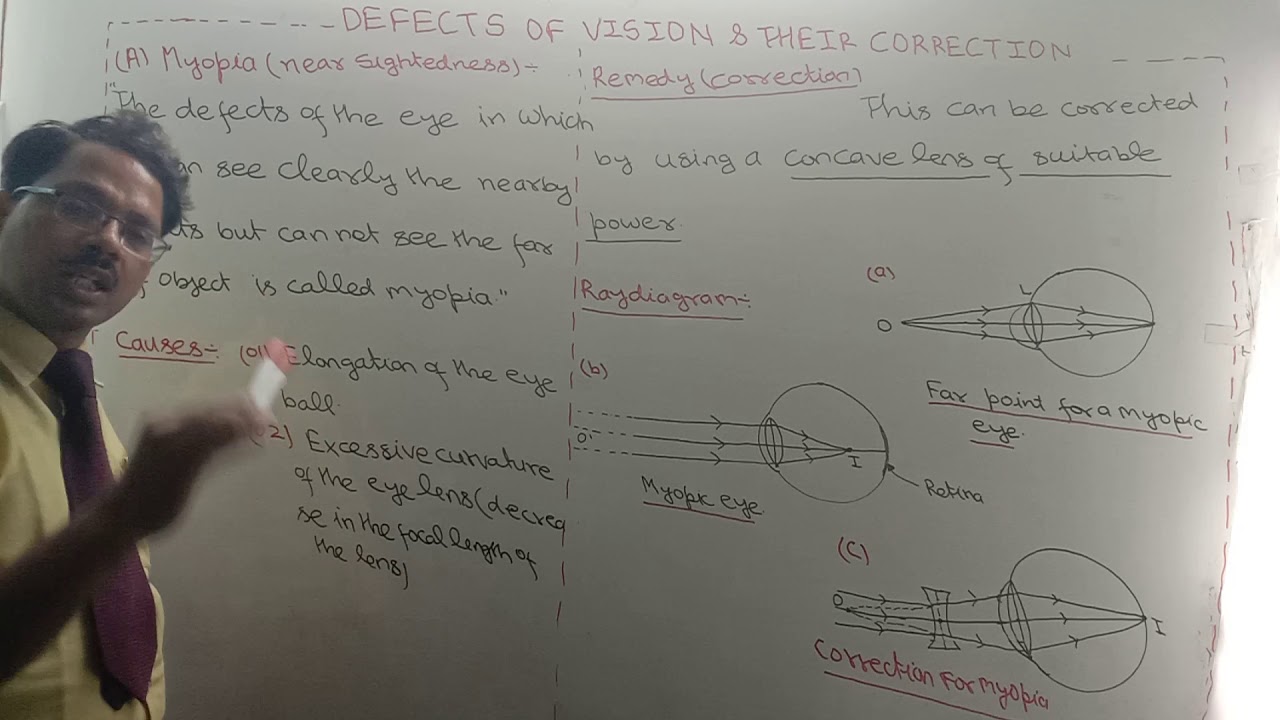 DEFECTS OF VISION & THEIR CORRECTION
(A) Myopia (near Sightedness) :-
"The defects of the eye in which
see clearly the nearby
but can not see the far
object is called myopia."
Causes:- (01) Elongation of the eye
ball.
(2) Excessive curvature
of the eye lens (decrea
se in the focal length of
the lens)
Remedy (correction)
This can be corrected
by using a concave lens of suitable
power.
Ray diagram:-
(a)
L
O
Far point for a myopic
eye.
(b)
O'
I
Retina
Myopic eye
(C)
O
I
Correction For myopia